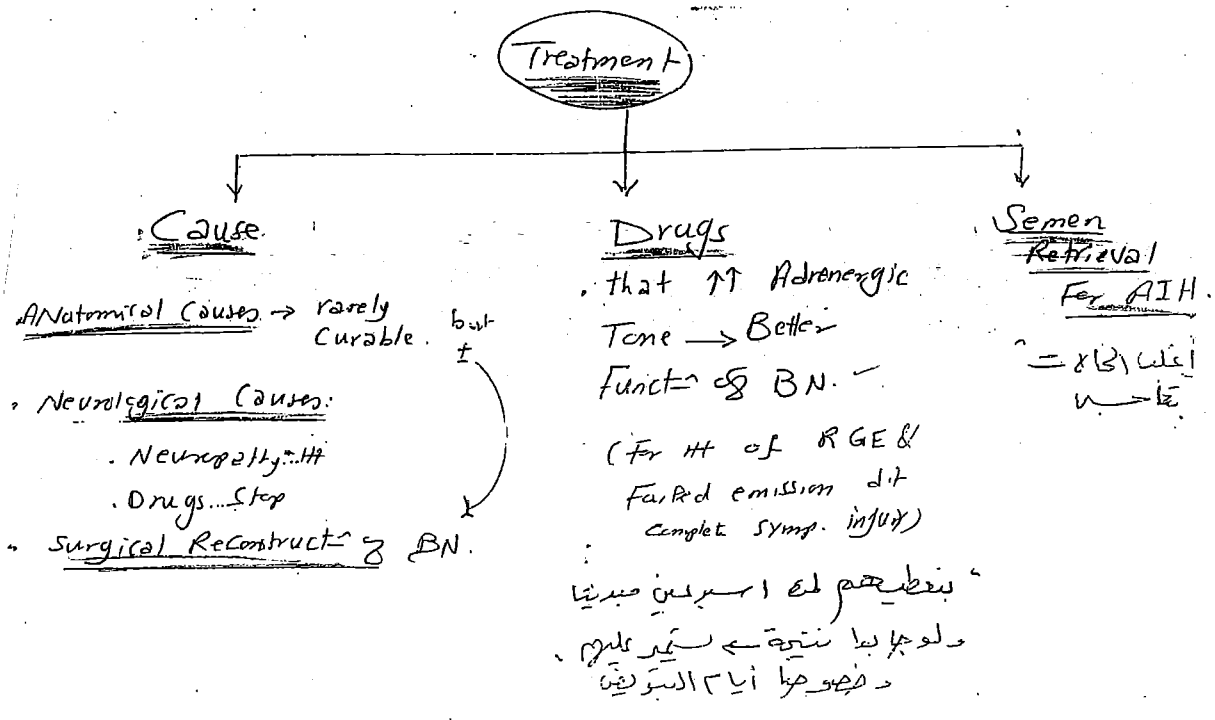 Treatment
Cause
Anatomical Causes → rarely
Curable. but
±
Neurological Causes:
. Neuropathy...ttt
. Drugs...Stop
Surgical Reconstruct⌒ of BN.
Drugs
. that ↑↑ Adrenergic
Tone → Better
Funct⌒ of BN.
(For ttt of RGE &
Failed emission d.t
complete symp. injury)
بنعطيهم لمدة اسبوعين مبدئيا
ولو جابوا نتيجة → نستمر عليهم .
وخصوصا أيام التبويض
Semen
Retrieval
For AIH.
أغلب الحالات
بتحتاجه